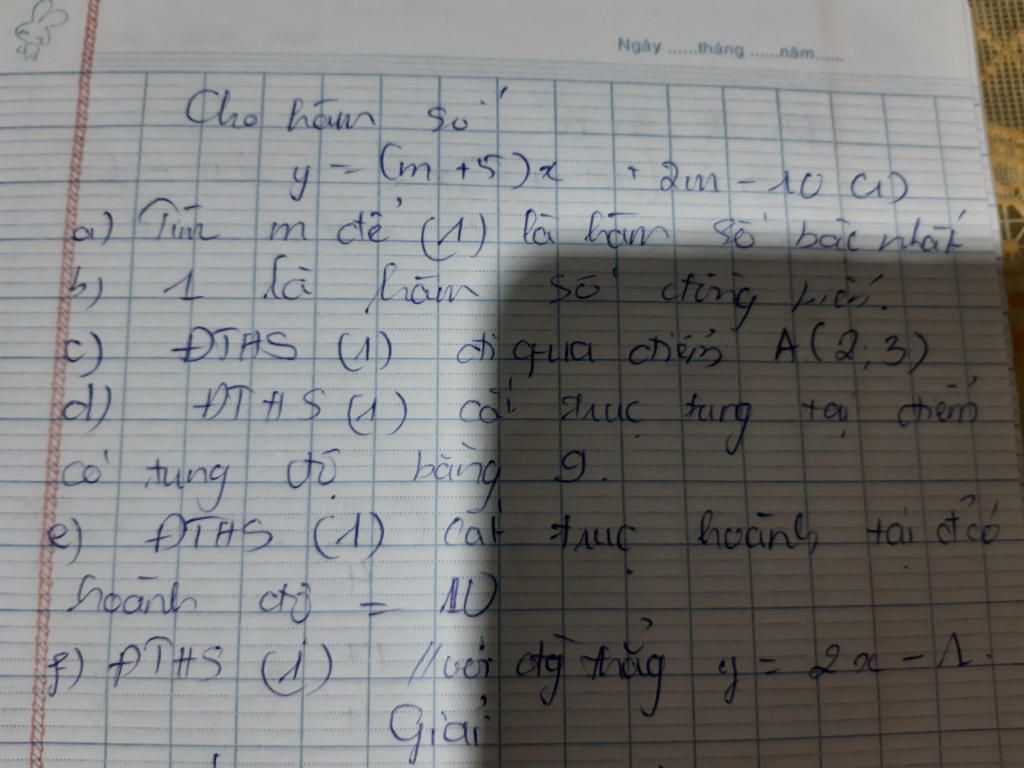 Ngày ......tháng ......năm......
Cho hàm số
y = (m + 5)x + 2m - 10 (1)
a) Tìm m để (1) là hàm số bậc nhất
b) 1 là hàm số đồng biến.
c) ĐTHS (1) đi qua điểm A(2;3)
d) ĐTHS (1) cắt trục tung tại điểm
có tung độ bằng 9.
e) ĐTHS (1) cắt trục hoành tại đ'có
hoành độ = 10
f) ĐTHS (1) // với đg thẳng y = 2x - 1.
Giải